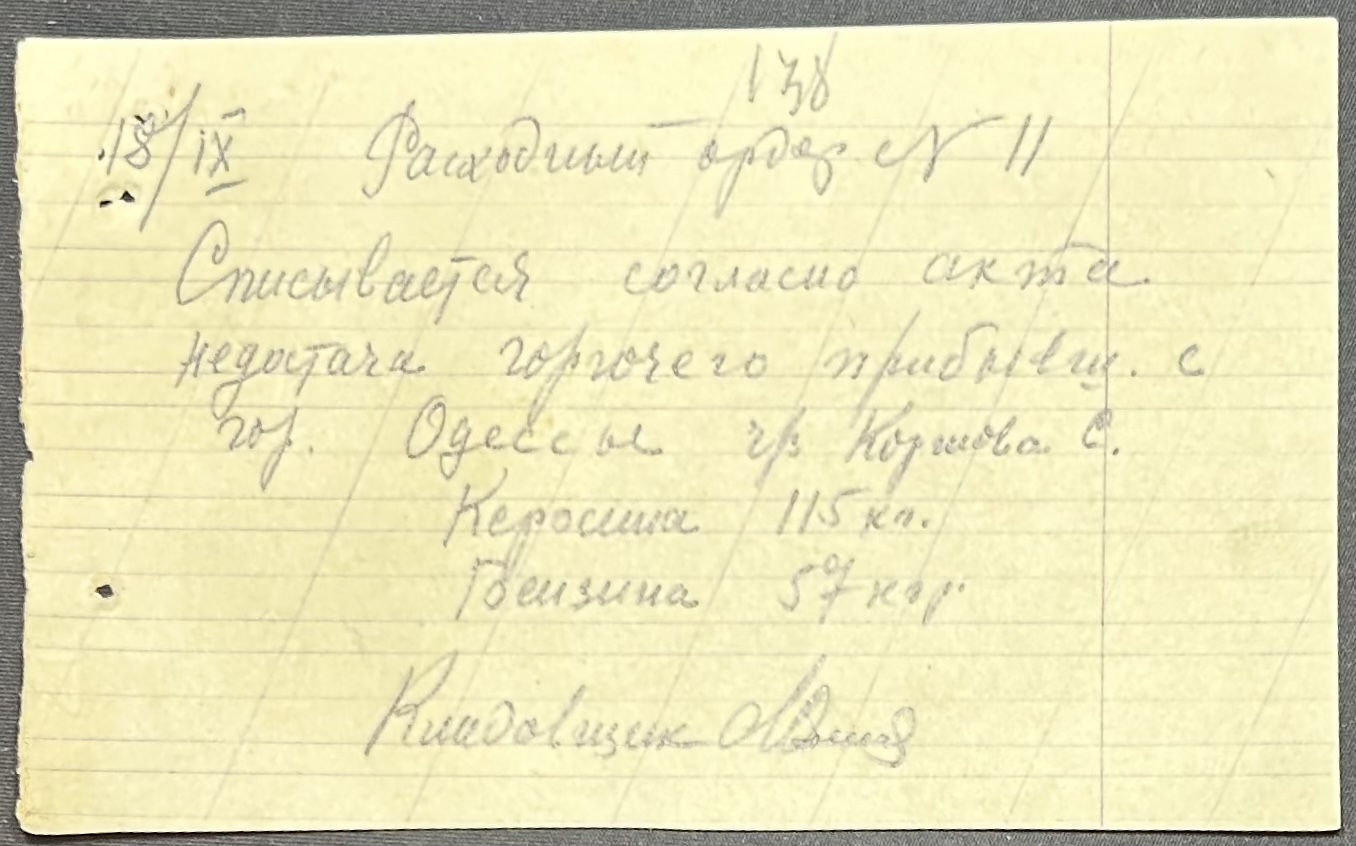 138
18/IX Расходный ордер № 11
Списывается согласно акта
недостача горючего прибывш. с
гор. Одессы ч/з Коршова С.
Керосина 115 кг.
Бензина 57 кгр.
Кладовщик